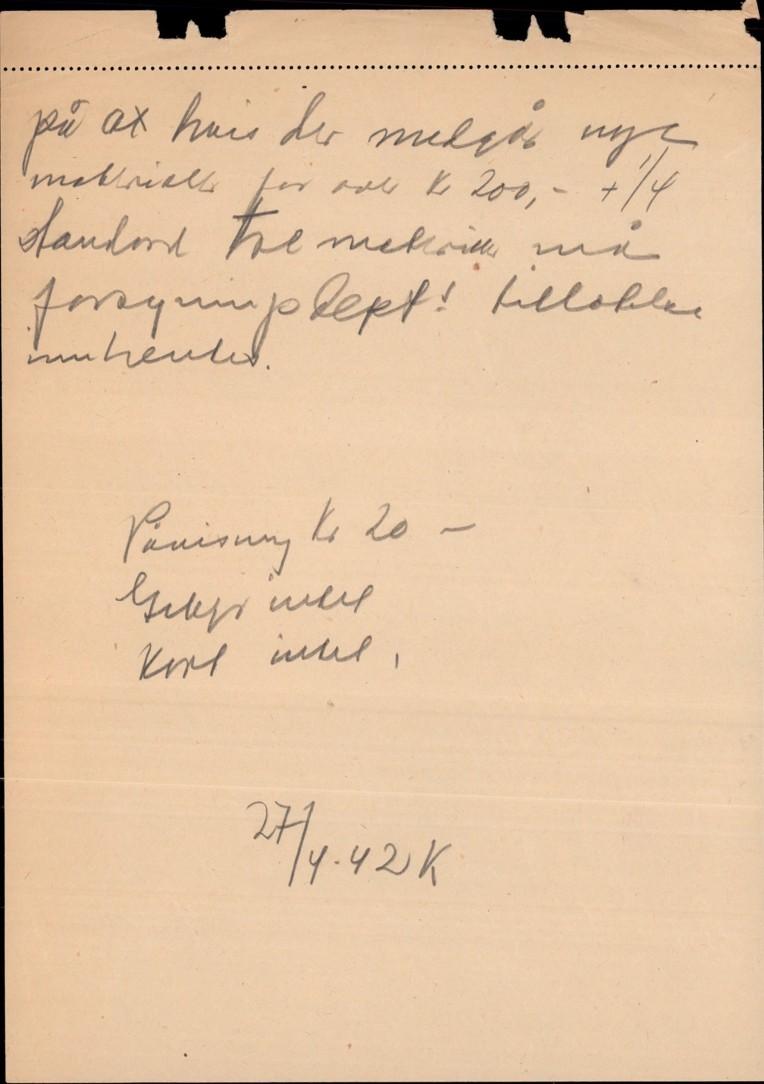 på at hvis der medgår nye
materialer for over Kr 200,- + 1/4
standard trematerialer må
forsyningsdept! tillatelse
innhentes.
Påvisning Kr 20 -
Gebyr intet
Kort intet.
27/4-42 K